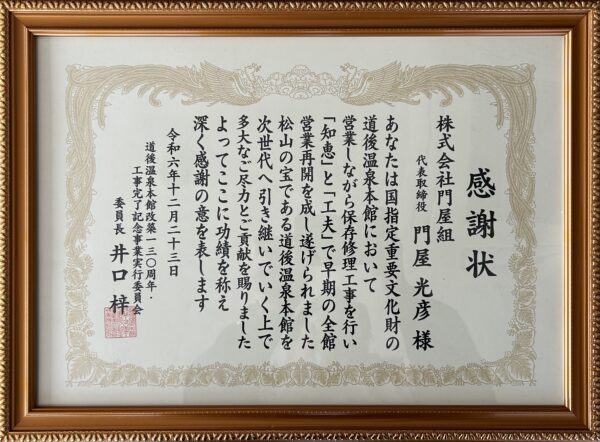 感謝状
株式会社門屋組
代表取締役 門屋 光彦 様
あなたは国指定重要文化財の
道後温泉本館において
営業しながら保存修理工事を行い
「知恵」と「工夫」で早期の全館
営業再開を成し遂げられました
松山の宝である道後温泉本館を
次世代へ引き継いでいく上で
多大なご尽力とご貢献を賜りました
よってここに功績を称え
深く感謝の意を表します
令和六年十二月二十三日
道後温泉本館改築一三〇周年・
工事完了記念事業実行委員会
委員長 井口 梓